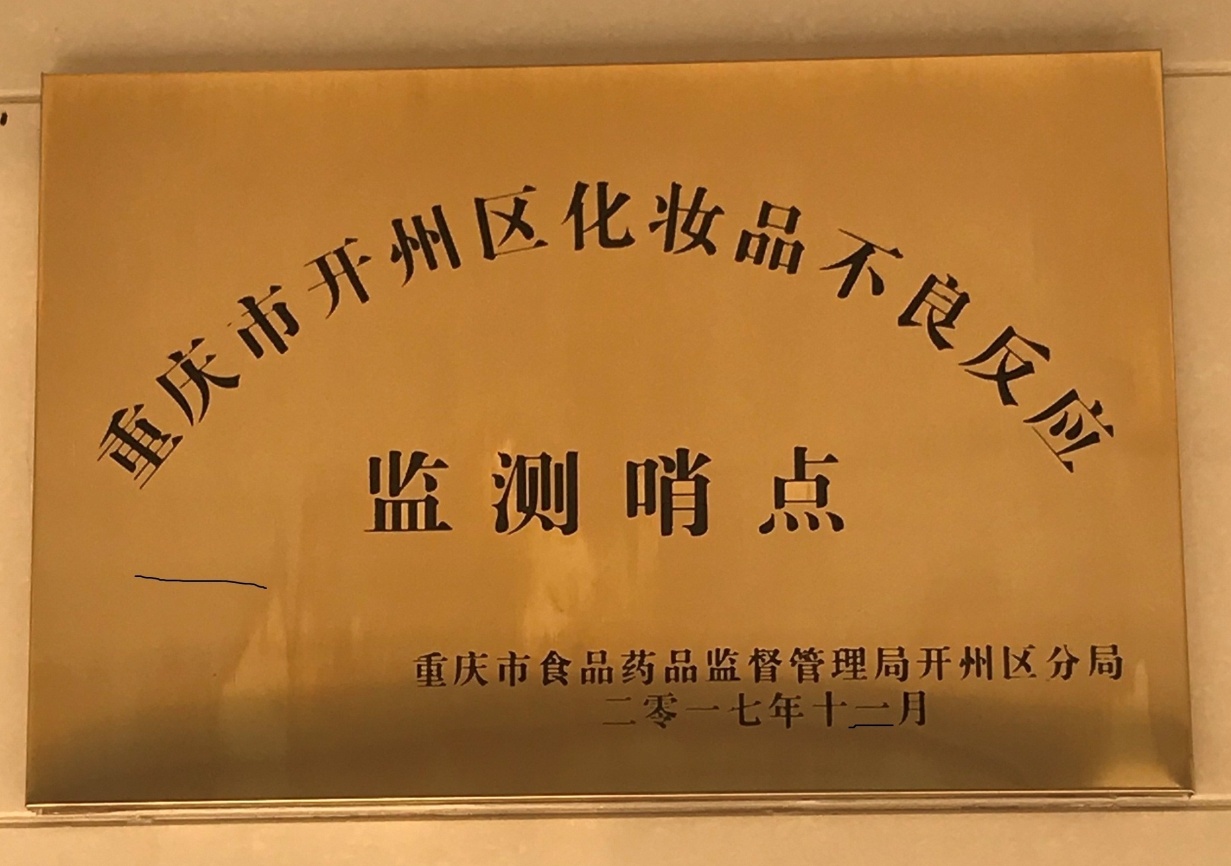 重庆市开州区化妆品不良反应
监测哨点
重庆市食品药品监督管理局开州区分局
二零一七年十一月